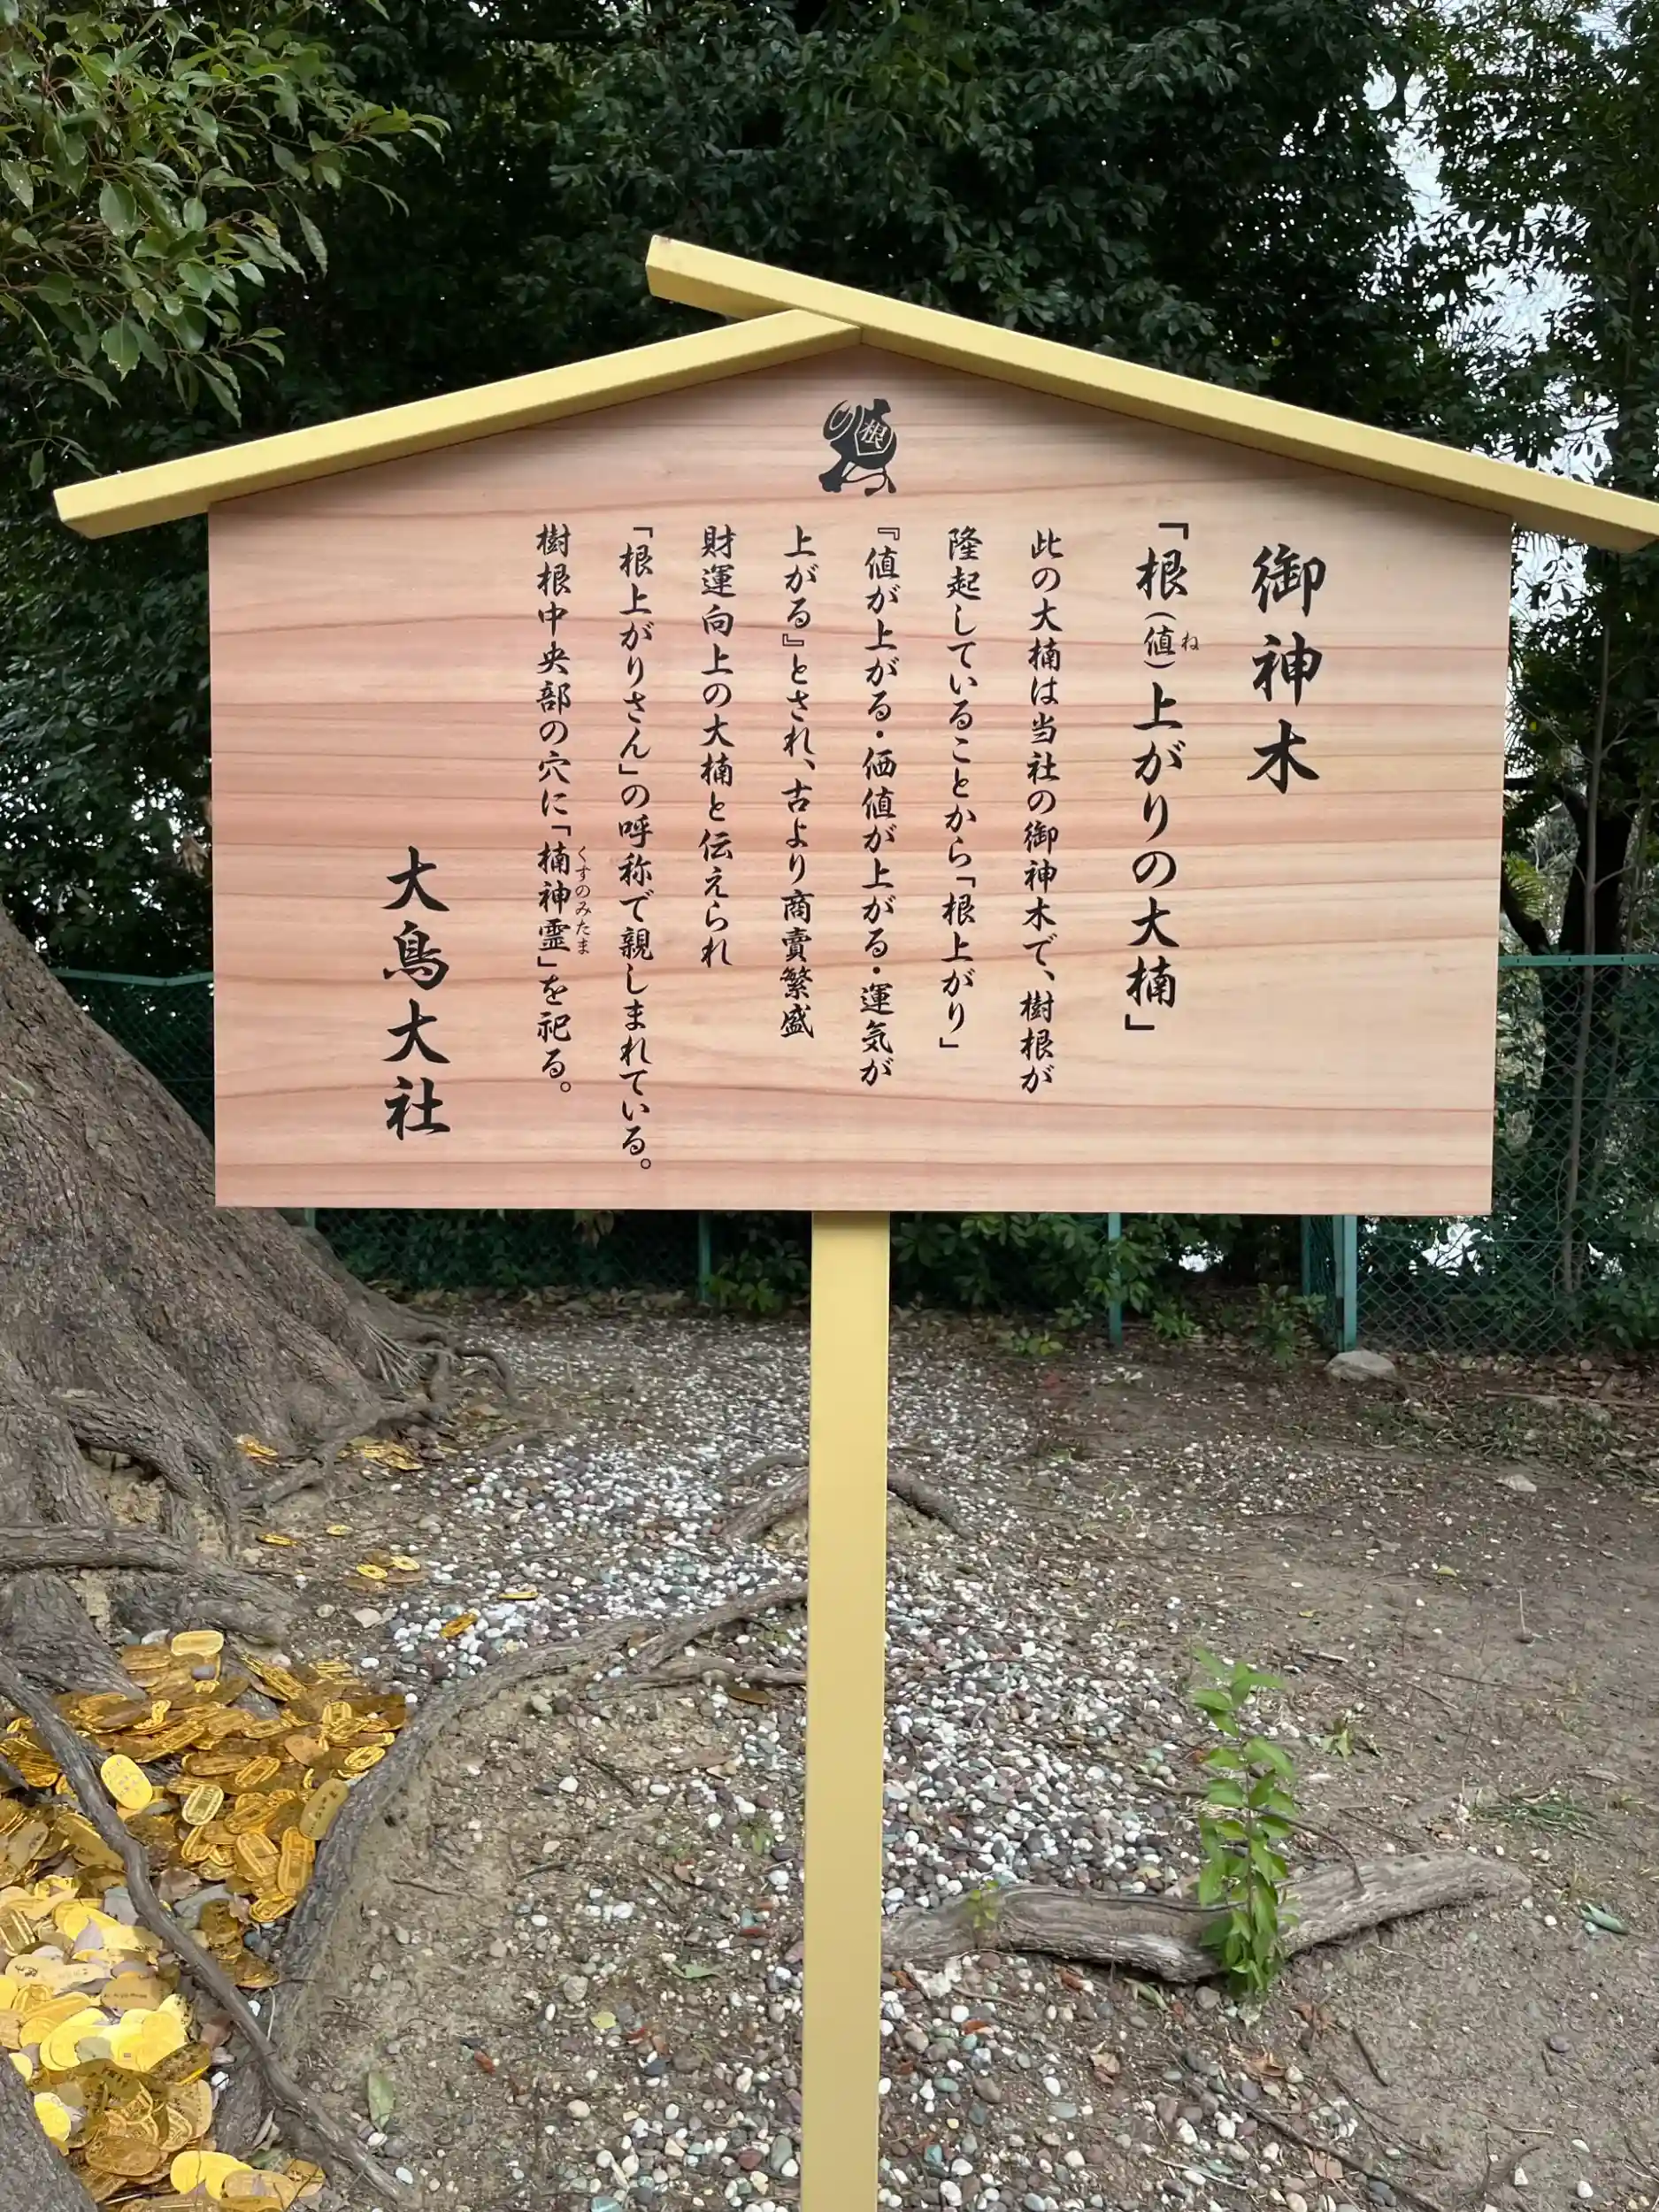 根
御神木
「根（値）上がりの大楠」
ね
此の大楠は当社の御神木で、樹根が
隆起していることから「根上がり」
『値が上がる・価値が上がる・運気が
上がる』とされ、古より商賣繁盛
財運向上の大楠と伝えられ
「根上がりさん」の呼称で親しまれている。
樹根中央部の穴に「楠神霊」を祀る。
くすのみたま
大鳥大社